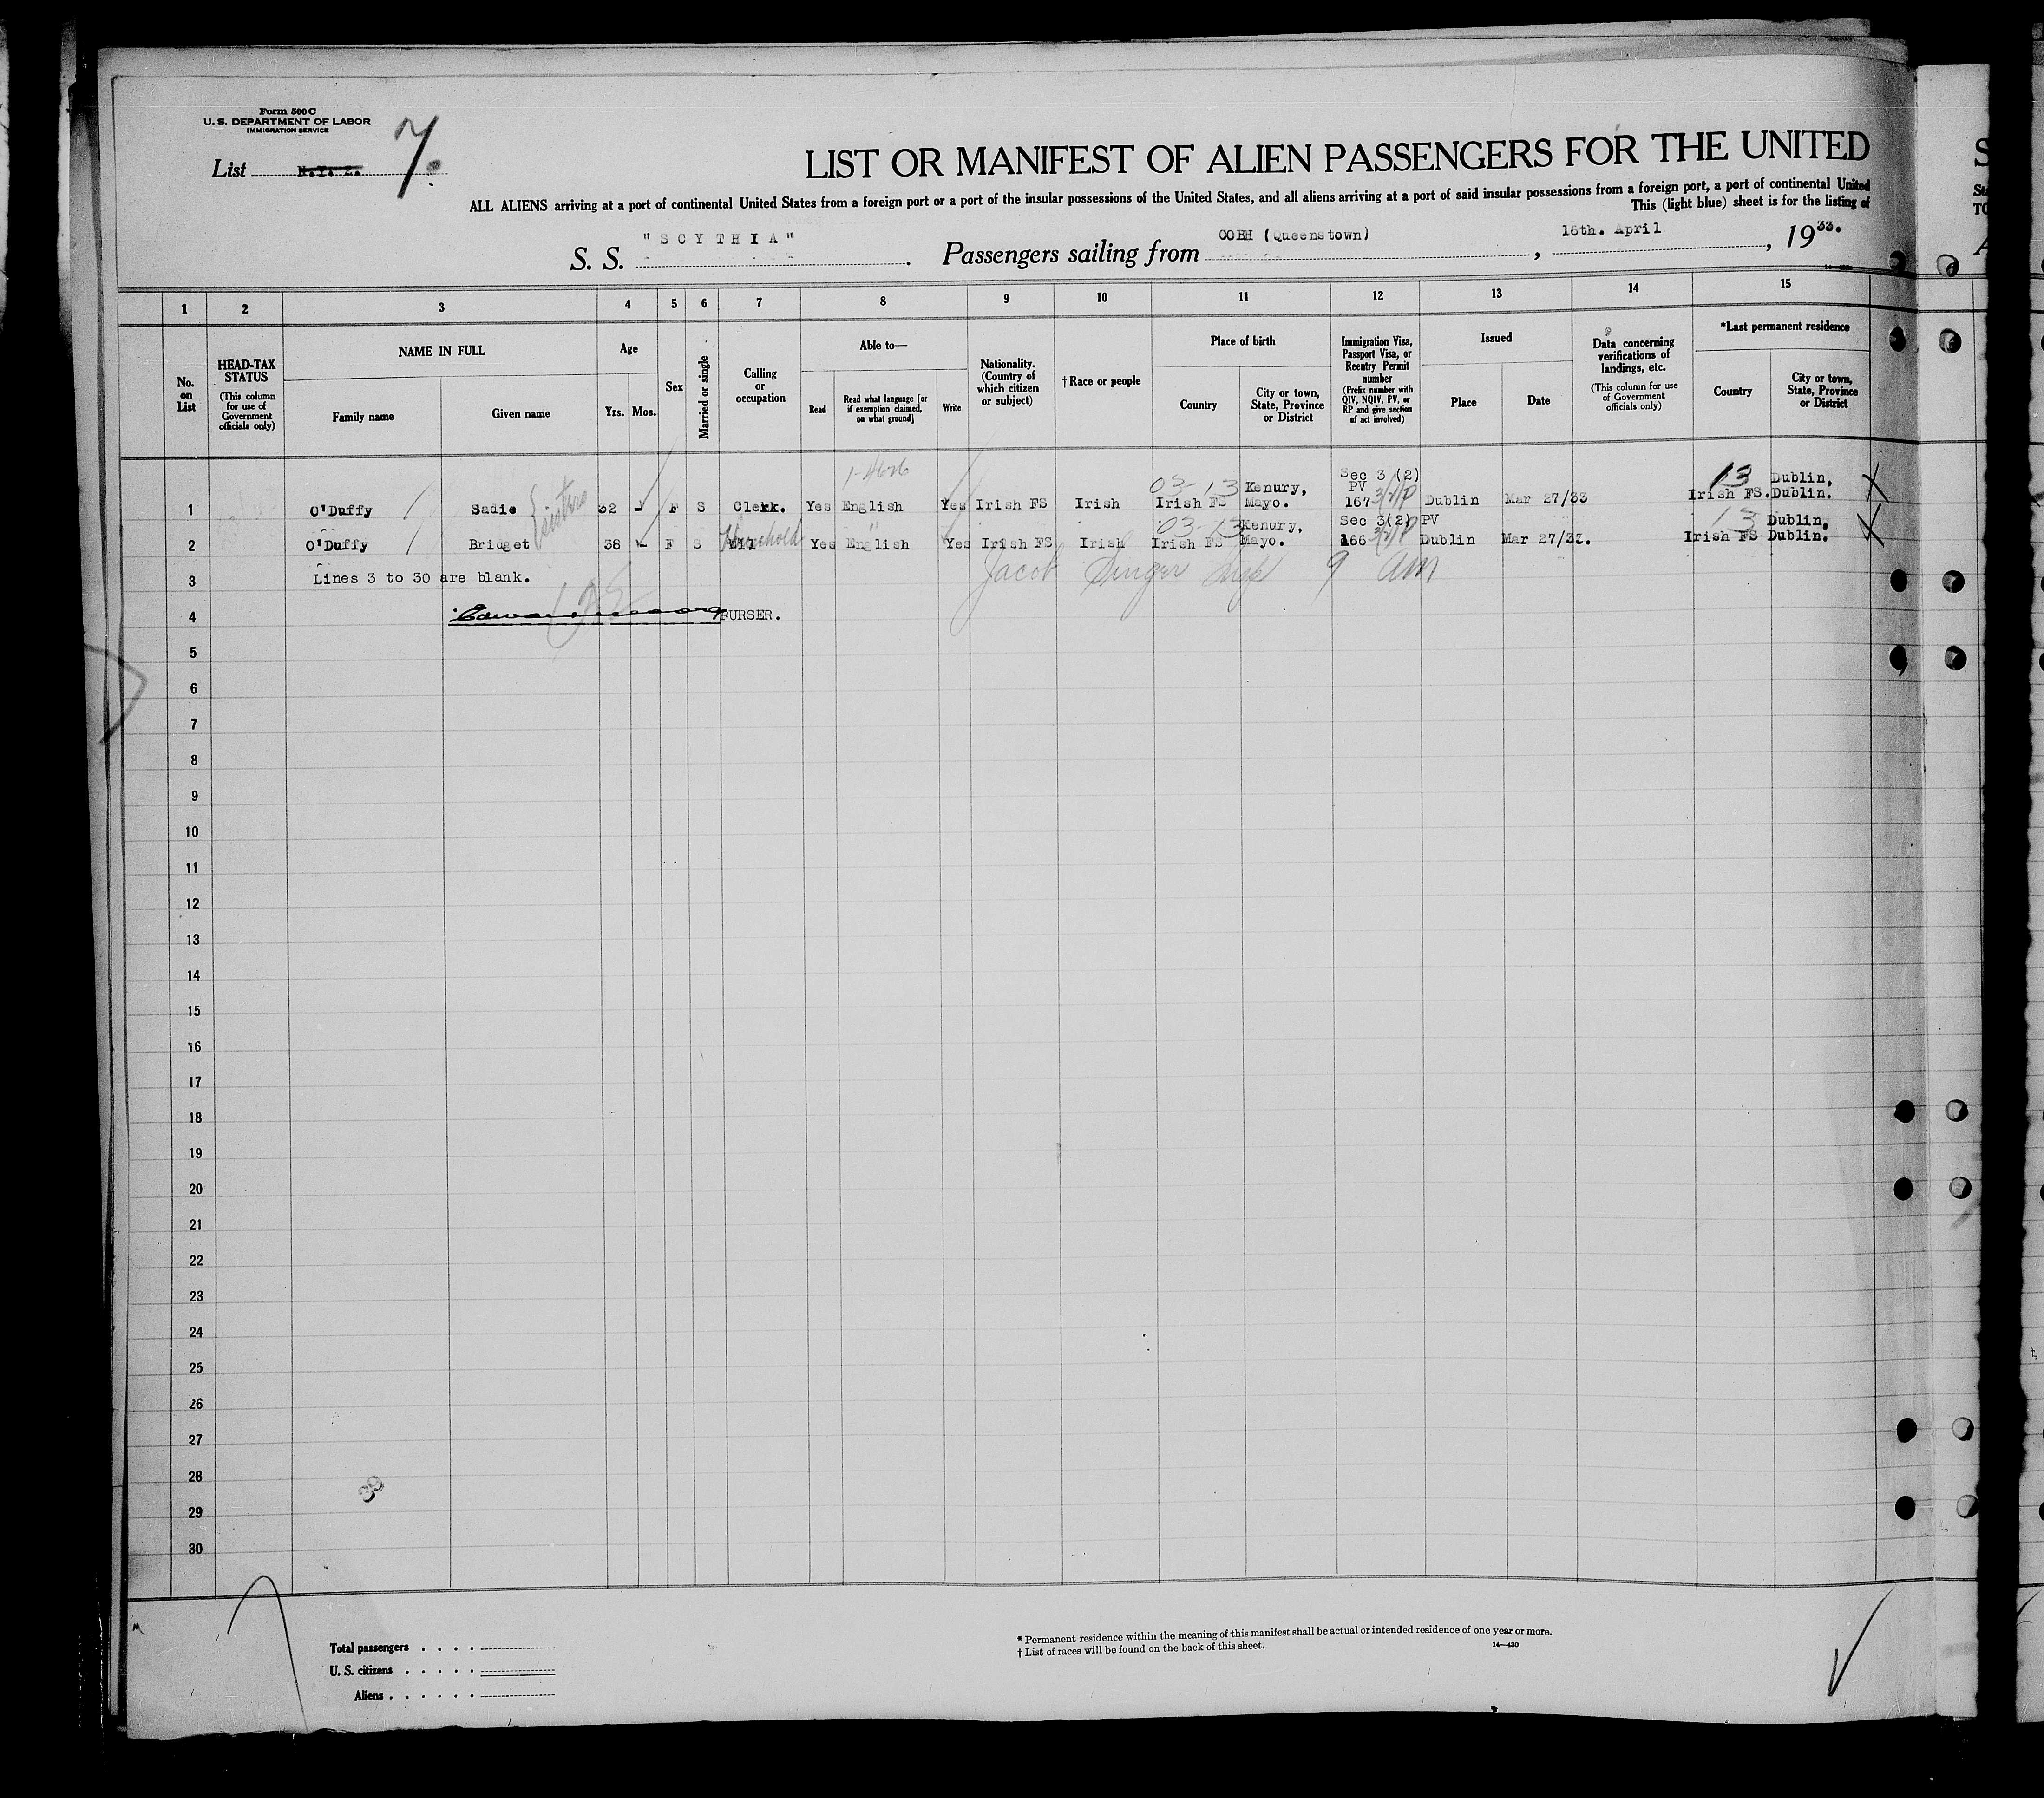 Form 500 C
U. S. DEPARTMENT OF LABOR
IMMIGRATION SERVICE
List 7.
LIST OR MANIFEST OF ALIEN PASSENGERS FOR THE UNITED
ALL ALIENS arriving at a port of continental United States from a foreign port or a port of the insular possessions of the United States, and all aliens arriving at a port of said insular possessions from a foreign port, a port of continental United
This (light blue) sheet is for the listing of
S. S. "SCYTHIA". Passengers sailing from COBH (Queenstown), 16th. April, 1933.
1 2 3 4 5 6 7 8 9 10 11 12 13 14 15
No. on List
HEAD-TAX STATUS (This column for use of Government officials only)
NAME IN FULL
Family name Given name
Age
Yrs. Mos.
Sex
Married or single
Calling or occupation
Able to—
Read
Read what language [or if exemption claimed, on what ground]
Write
Nationality. (Country of which citizen or subject)
†Race or people
Place of birth
Country
City or town, State, Province or District
Immigration Visa, Passport Visa, or Reentry Permit number (Prefix number with QIV, NQIV, PV, or RP and give section of act involved)
Issued
Place Date
Data concerning verifications of landings, etc. (This column for use of Government officials only)
*Last permanent residence
Country
City or town, State, Province or District
03-13 Kenury, Sec 3 (2) PV 13 Dublin,
1 O'Duffy Sadie sisters 32 - F S Clerk. Yes English Yes Irish FS Irish Irish FS Mayo. 167 Dublin Mar 27/33 Irish FS. Dublin.
03-13 Kenury, Sec 3(2) PV 13 Dublin,
2 O'Duffy Bridget 38 - F S Household Nil Yes English Yes Irish FS Irish Irish FS Mayo. 166 Dublin Mar 27/33. Irish FS Dublin.
3 Lines 3 to 30 are blank. Jacob Singer Insp 9 am
4 PURSER.
5
6
7
8
9
10
11
12
13
14
15
16
17
18
19
20
21
22
23
24
25
26
27
28
29
30
Total passengers
U. S. citizens
Aliens
* Permanent residence within the meaning of this manifest shall be actual or intended residence of one year or more.
† List of races will be found on the back of this sheet. 14—430